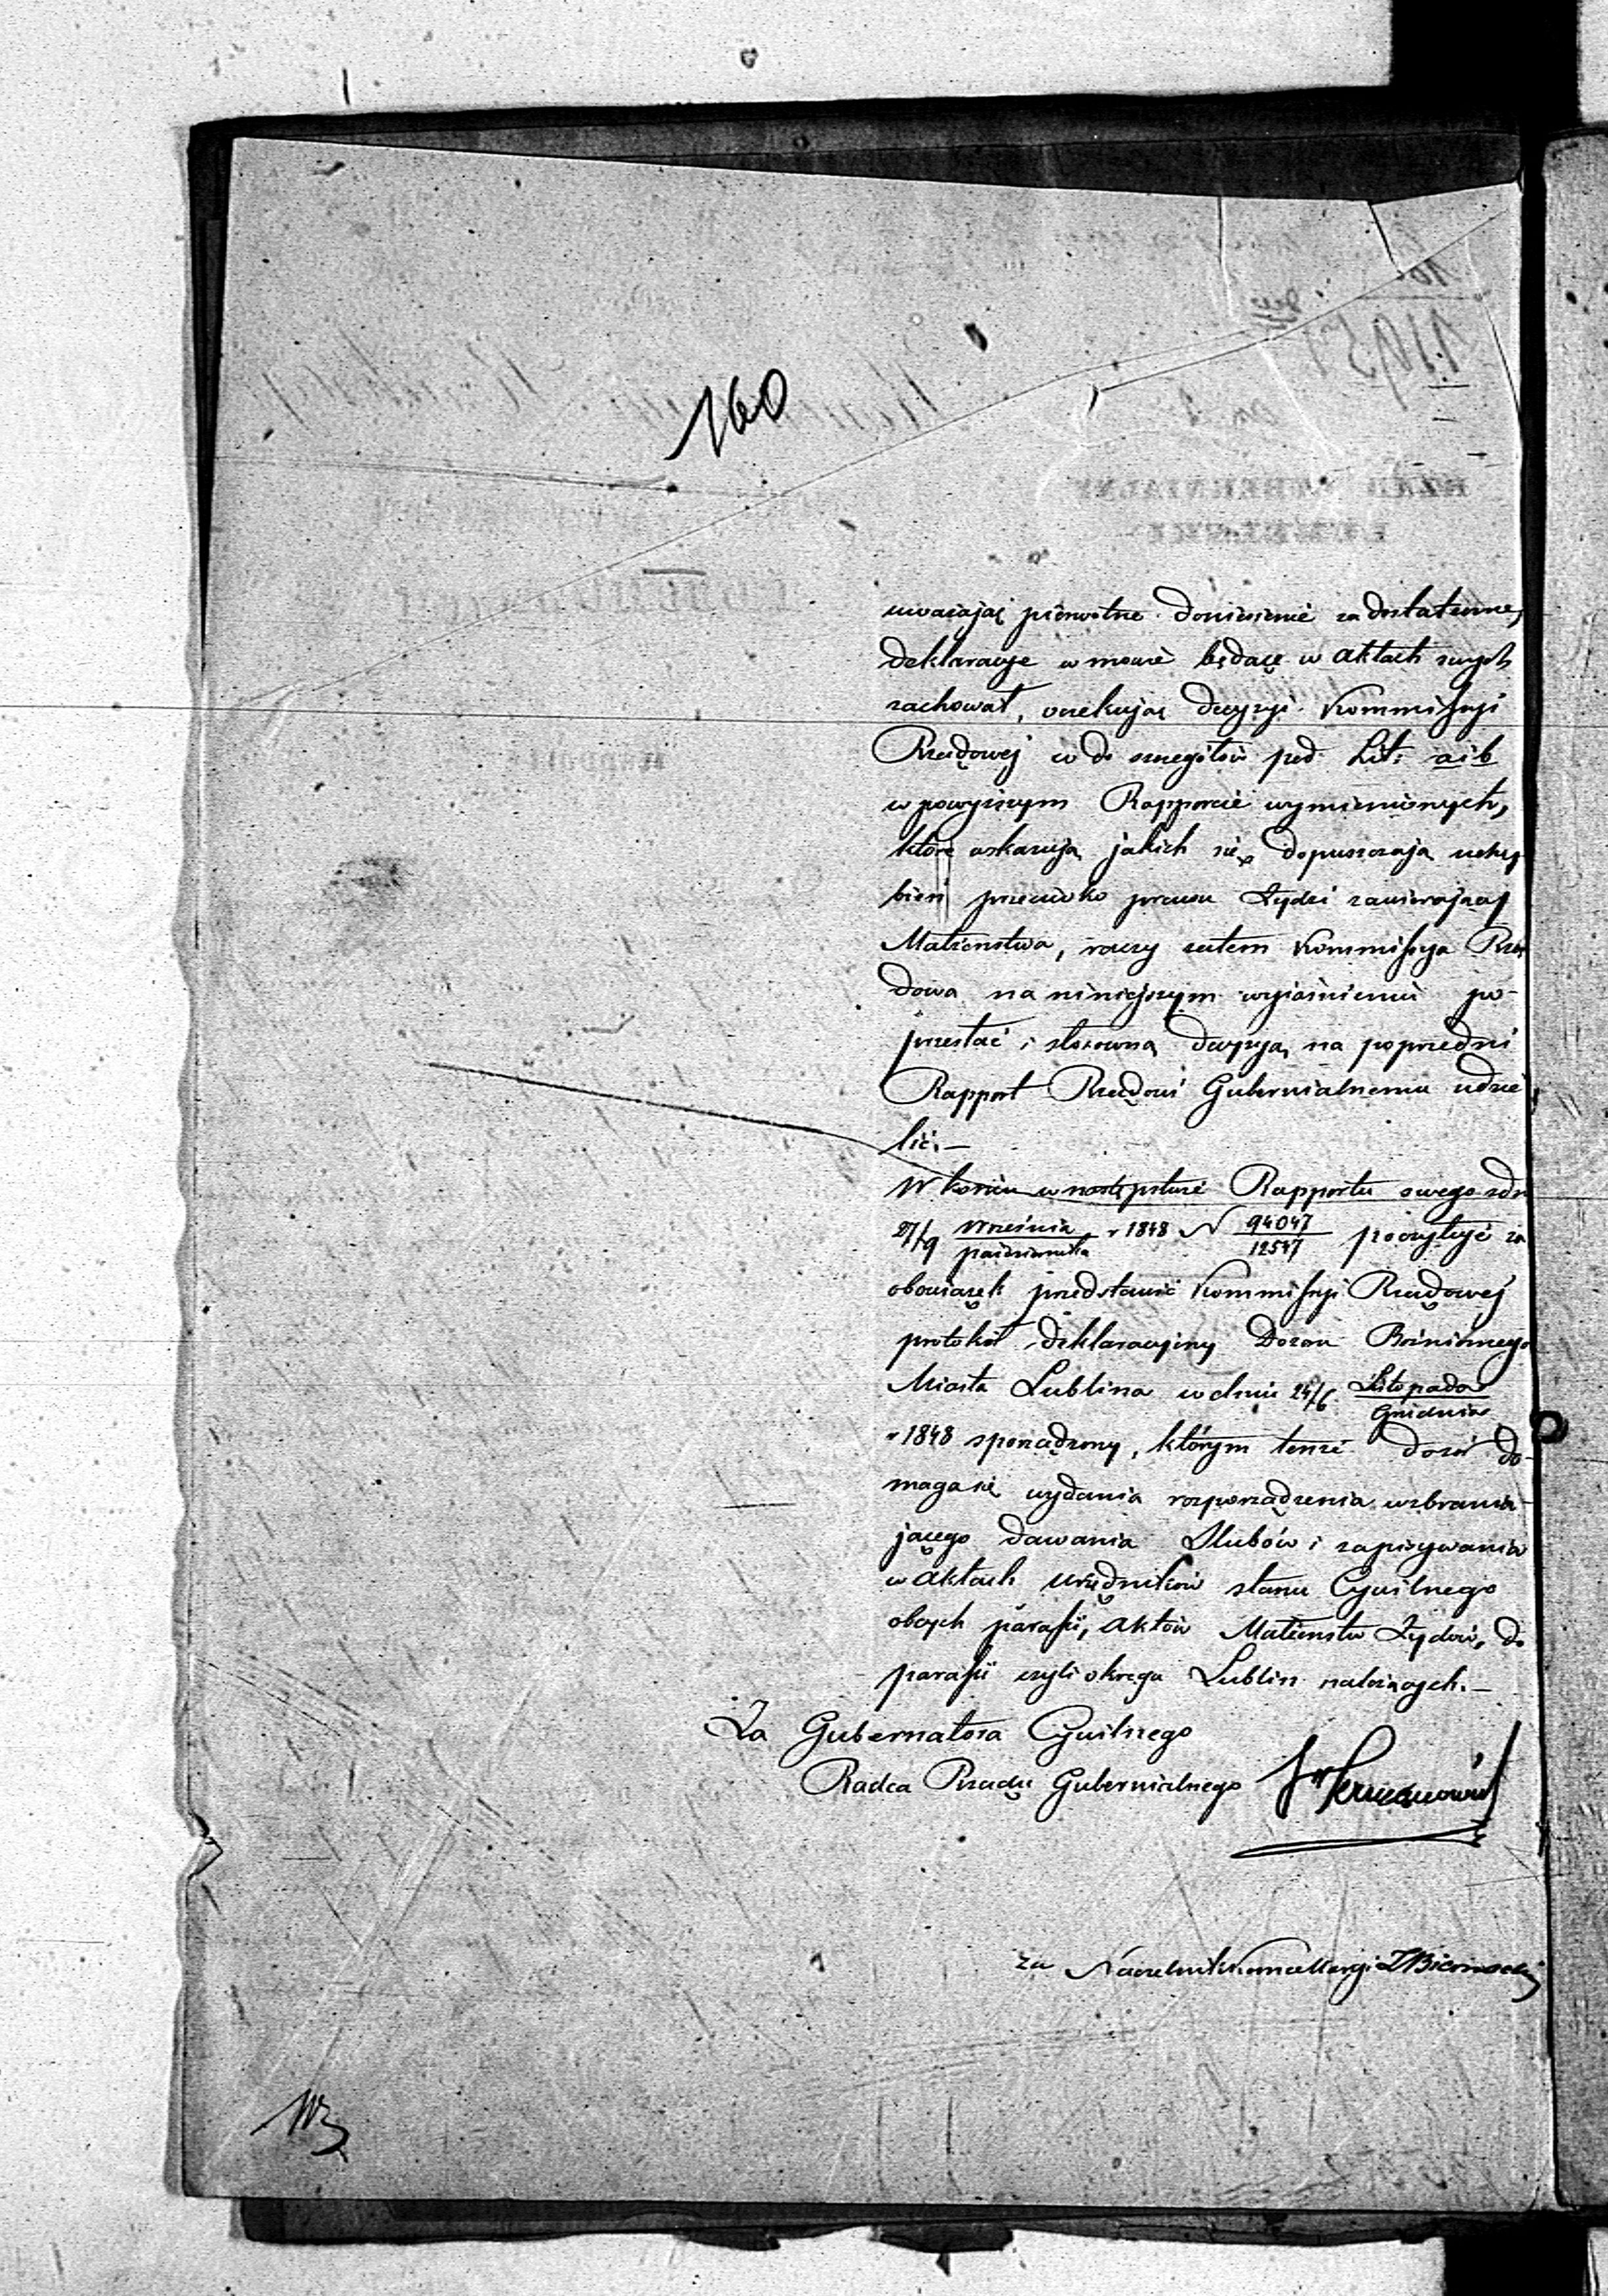 160
uważając pierwotne doniesienie za dostateczne,
deklaracye w mowie będące w aktach swych
zachował, oczekując decyzyi Kommissyi
Rządowej co do szczegółów pod Lit: a i b
w powyższym Rapporcie wymienionych,
które wskazują jakich się dopuszczają uchy-
bień przeciwko prawu Żydzi zawierający
Małżeństwa, raczy zatem Kommissya Rzą
dowa na niniejszym wyjaśnieniu po-
przestać i stosowną decyzyą na poprzedni
Rapport Rządowi Gubernialnemu udzie
lić.—
W końcu w następstwie Rapportu swego z dn
27/9 Września/października r 1848 N 94047/12547 poczytuje za
obowiązek przedstawić Kommissyi Rządowej
protokół deklaracyjny Dozoru Bożniczego
Miasta Lublina w dniu 24/6 Listopada/Grudnia
r 1848 sporządzony, którym tenże dozór do-
maga się wydania rozporządzenia wzbrania-
jącego dawania Ślubów i zapisywania
w aktach urzędników stanu Cywilnego
obcych parafii, aktów Małżeństw Żydów, do
parafii czyli okręgu Lublin należących.—
Za Gubernatora Cywilnego
Radca Rządu Gubernialnego
za Naczelnik Kancellaryi